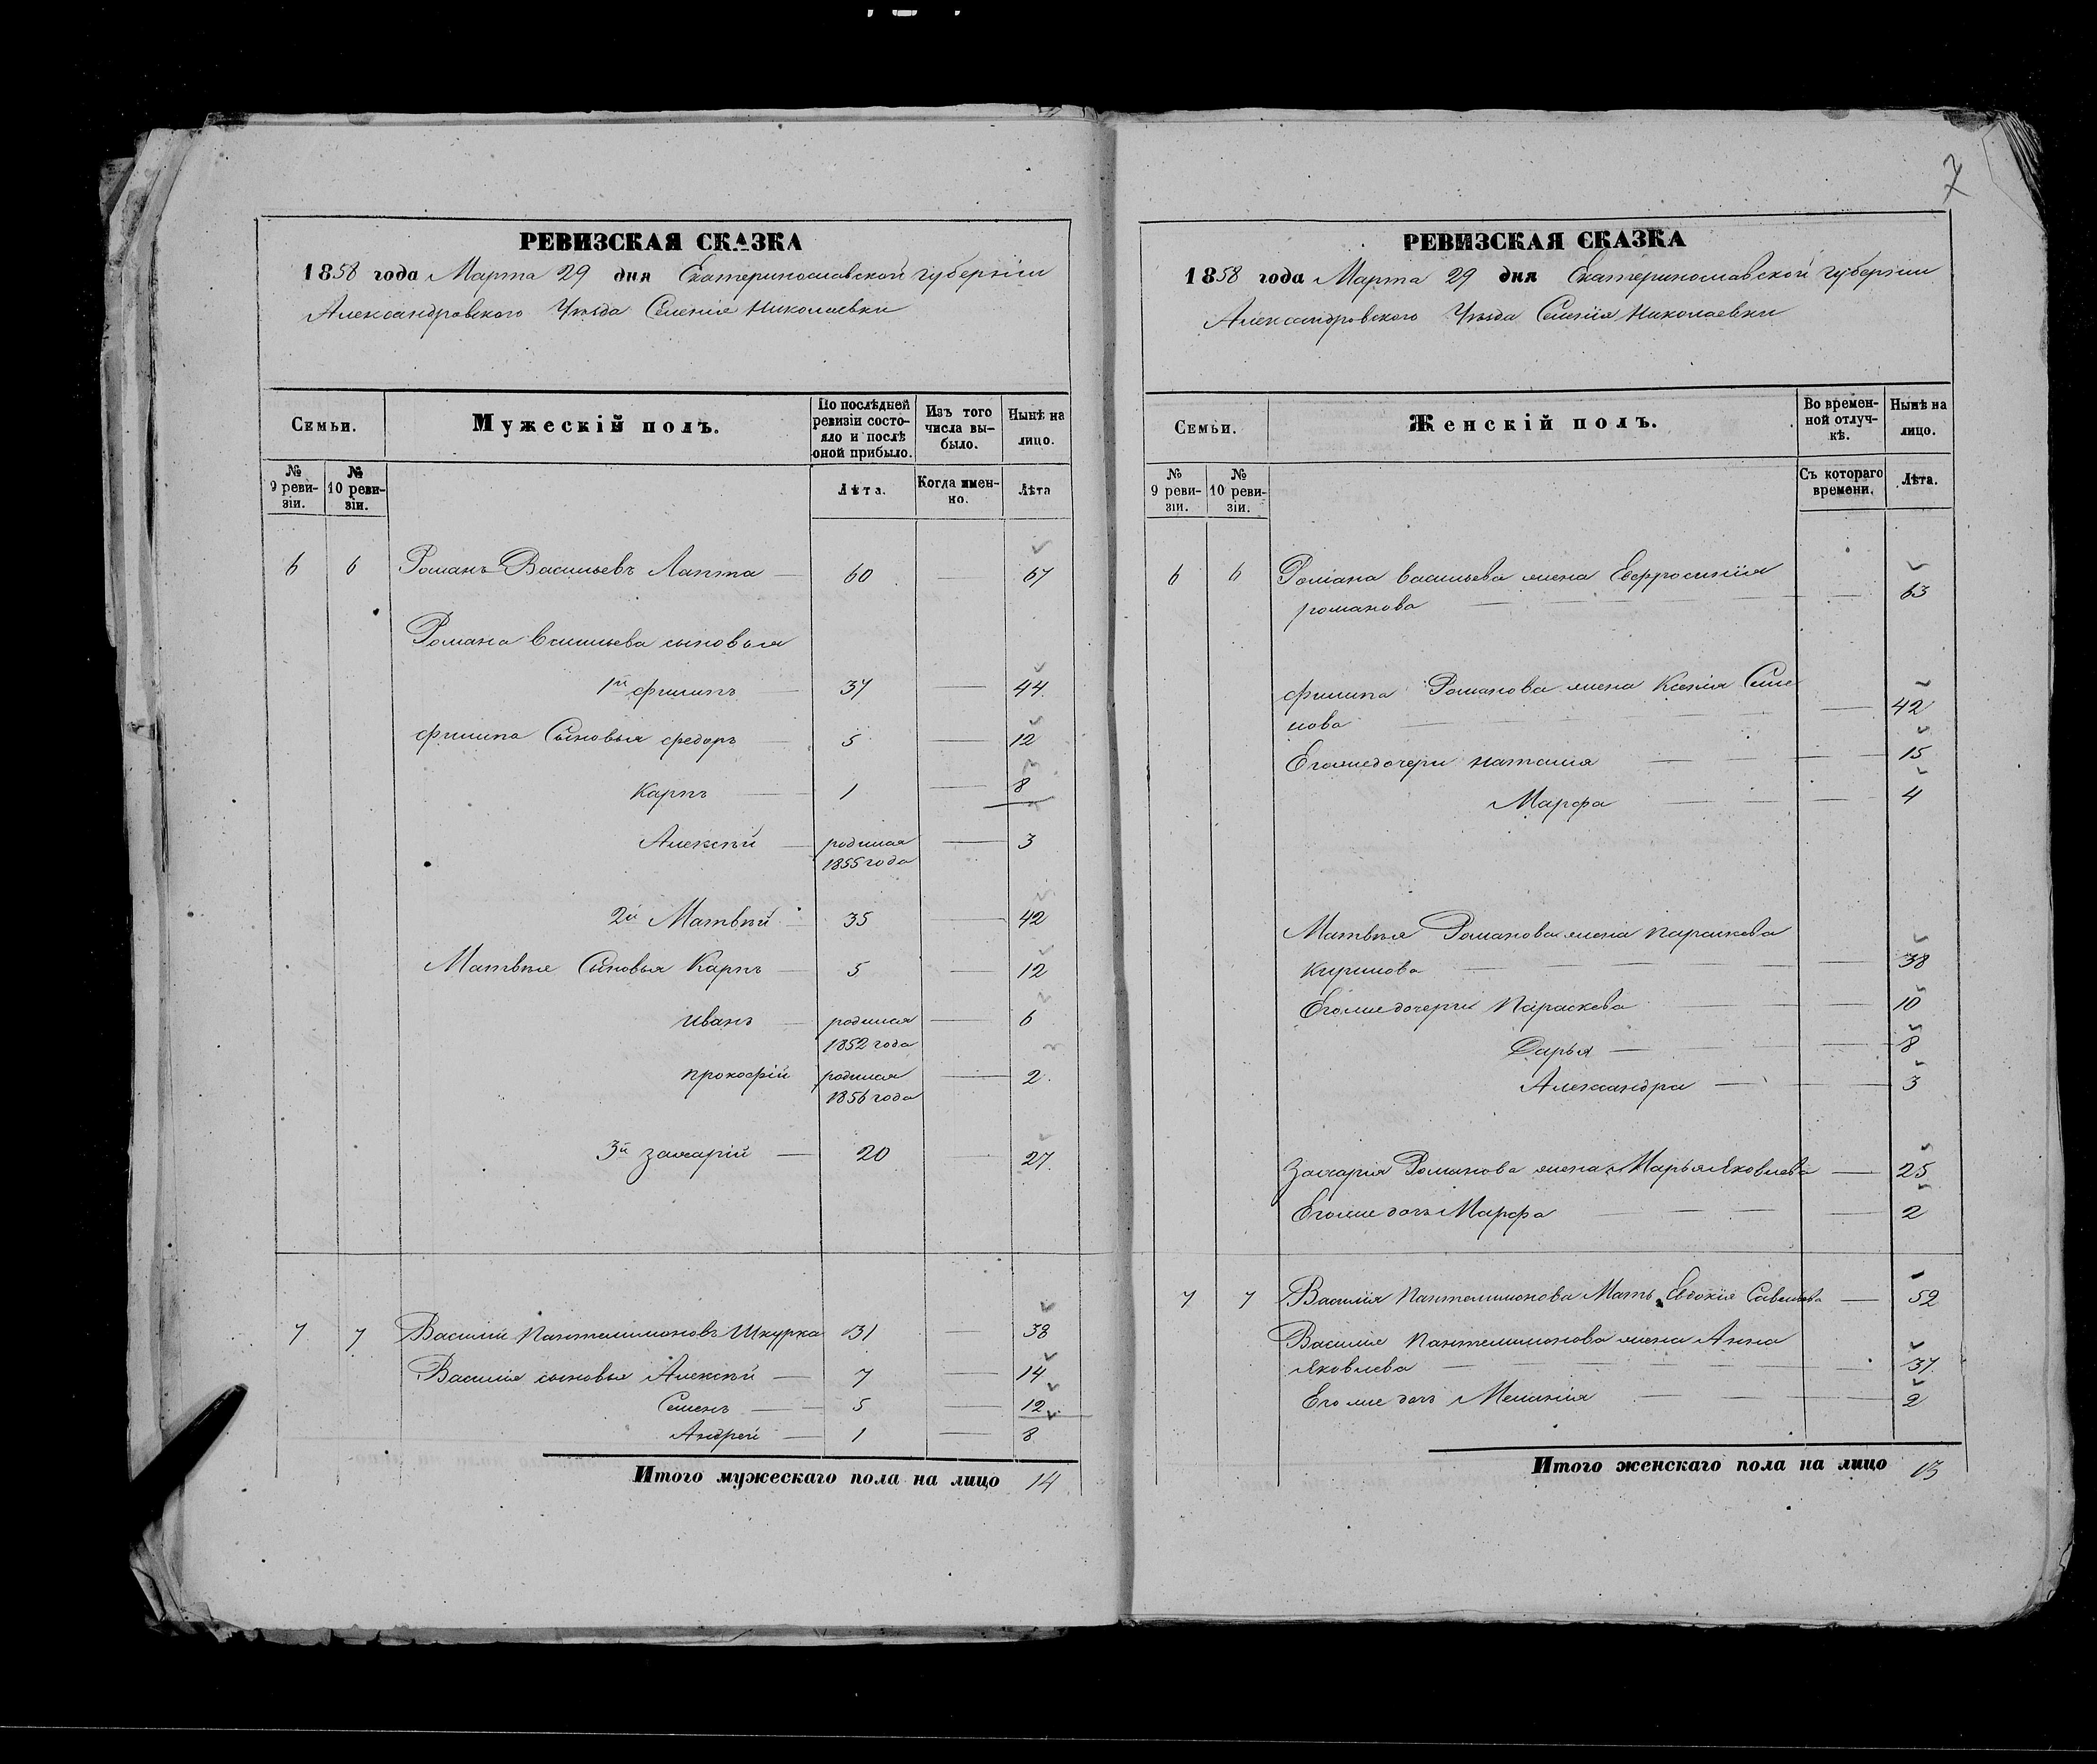 7
РЕВИЗСКАЯ СКАЗКА
1858 года Марта 29 дня Екатеринославской губерніи
Александровского Уѣзда Селенія Николаевки
Семьи.
Мужескій полъ.
По послѣдней ревизіи состояло и послѣ оной прибыло.
Изъ того числа выбыло.
Нынѣ на лицо.
№ 9 ревизіи.
№ 10 ревизіи.
Лѣта.
Когда именно.
Лѣта
6 6 Романъ Васильевъ Лапта — 60 — 67
Романа Васильева сыновья
1й Филипъ — 37 — 44
Филипа Сыновья Федоръ — 5 — 12
Карпъ — 1 — 8
Алексѣй — родился 1855 года — 3
2й Матвѣй — 35 — 42
Матвѣя Сыновья Карпъ — 5 — 12
Иванъ — родился 1852 года — 6
Прокофій родился 1856 года — 2
3й Захарій — 20 — 27
7 7 Василій Пантелимоновъ Шкурка 31 — 38
Василія сыновья Алексѣй — 7 — 14
Семенъ — 5 — 12
Андрей — 1 — 8
Итого мужескаго пола на лицо 14
РЕВИЗСКАЯ СКАЗКА
1858 года Марта 29 дня Екатеринославской губерніи
Александровского Уѣзда Селенія Николаевки
Семьи.
Женскій полъ.
Во временной отлучкѣ.
Нынѣ на лицо.
№ 9 ревизіи.
№ 10 ревизіи.
Съ котораго времени.
Лѣта.
6 6 Романа Васильева жена Евфросинія
Романова — 63
Филипа Романова жена Ксенія Семе
нова — 42
Егоже дочери Наталия — 15
Марфа — 4
Матвѣя Романова жена Параскева
Кирилова — 38
Егоже дочери Параскева — 10
Дарья — 8
Александра — 3
Захарія Романова жена Марья Яковлева — 25
Егоже дочь Марфа — 2
7 7 Василія Пантелимонова Мать Евдокія Савельева — 52
Василія Пантелимонова жена Анна
Яковлева — 37
Егоже дочь Меланія — 2
Итого женскаго пола на лицо 13